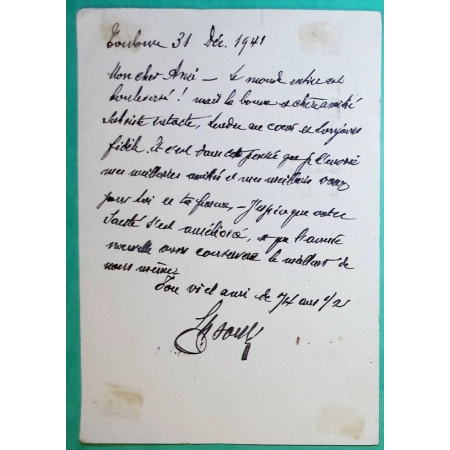 Toulouse 31 Déc. 1941
Mon cher Ami — Le monde entier est
bouleversé ! mais la bonne et chère amitié
subsiste intacte, tendre au cœur et toujours
fidèle. Et c'est dans cette pensée que je t'envoie
mes meilleures amitiés et mes meilleurs vœux
pour toi et ta femme, — J'espère que votre
santé s'est améliorée, et que l'année
nouvelle vous conservera le meilleur de
nous mêmes
Ton vieil ami de 74 ans 1/2